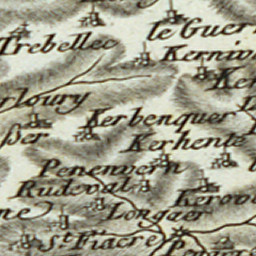 le Guer
Trebellec
Kerniv
Ke
rloury
ßer
Kerbenquer
Kerhente
Penenvern
Rudeval
Kerov
ne
Longaer
St. Fiacre